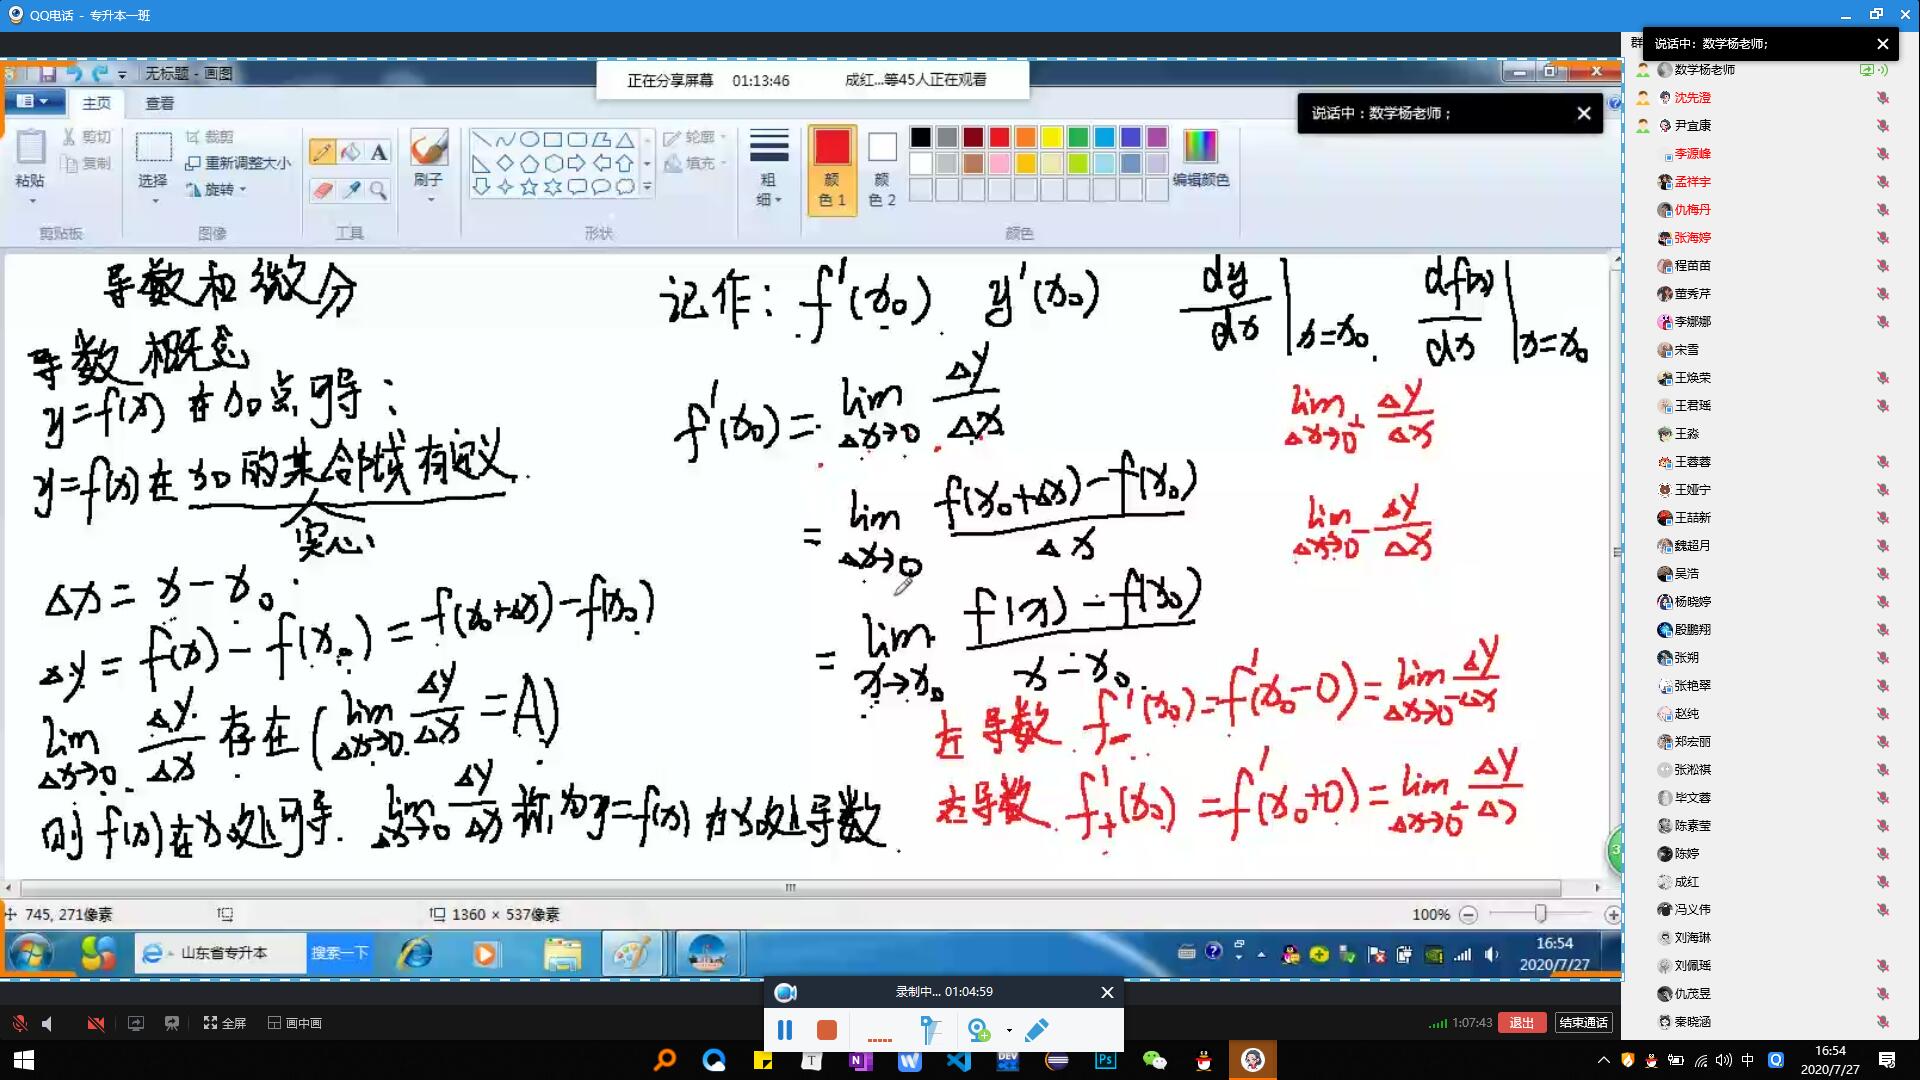 QQ电话 - 专升本一班
无标题 - 画图
正在分享屏幕 01:13:46 成红...等45人正在观看
说话中：数学杨老师；
说话中：数学杨老师；
主页 查看
粘贴 剪切 复制
剪贴板
选择 裁剪 重新调整大小 旋转
图像
A
工具
刷子
轮廓 填充
形状
粗细
颜色 1 颜色 2
编辑颜色
颜色
导数和微分
导数概念
y=f(x) 在x₀点可导：
y=f(x)在x₀的某邻域有定义
实心
Δx = x-x₀
Δy = f(x)-f(x₀)=f(x₀+Δx)-f(x₀)
lim Δx→0 Δy/Δx 存在(lim Δx→0 Δy/Δx =A)
则f(x)在x₀处可导. lim Δx→0 Δy/Δx 称为y=f(x)在x₀处导数
记作: f'(x₀) y'(x₀) dy/dx|x=x₀ df(x)/dx|x=x₀
f'(x₀)= lim Δx→0 Δy/Δx
= lim Δx→0 f(x₀+Δx)-f(x₀)/Δx
= lim x→x₀ f(x)-f(x₀)/x-x₀
lim Δx→0⁺ Δy/Δx
lim Δx→0⁻ Δy/Δx
左导数 f₋'(x₀)=f'(x₀-0)=lim Δx→0⁻ Δy/Δx
右导数 f₊'(x₀)=f'(x₀+0)=lim Δx→0⁺ Δy/Δx
745, 271像素
1360 × 537像素
100%
山东省专升本 搜索一下
16:54
2020/7/27
数学杨老师
沈先澄
尹宜康
李源峰
孟祥宇
仇梅丹
张海婷
程苗苗
董秀芹
李娜娜
宋雪
王焕荣
王君瑶
王淼
王蓉蓉
王娅宁
王喆新
魏超月
吴浩
杨晓婷
殷鹏翔
张朔
张艳翠
赵纯
郑宏丽
张淞祺
毕文蓉
陈素莹
陈婷
成红
冯义伟
刘海琳
刘佩瑶
仇茂昱
秦晓涵
录制中... 01:04:59
全屏 画中画
1:07:43 退出 结束通话
中
16:54
2020/7/27